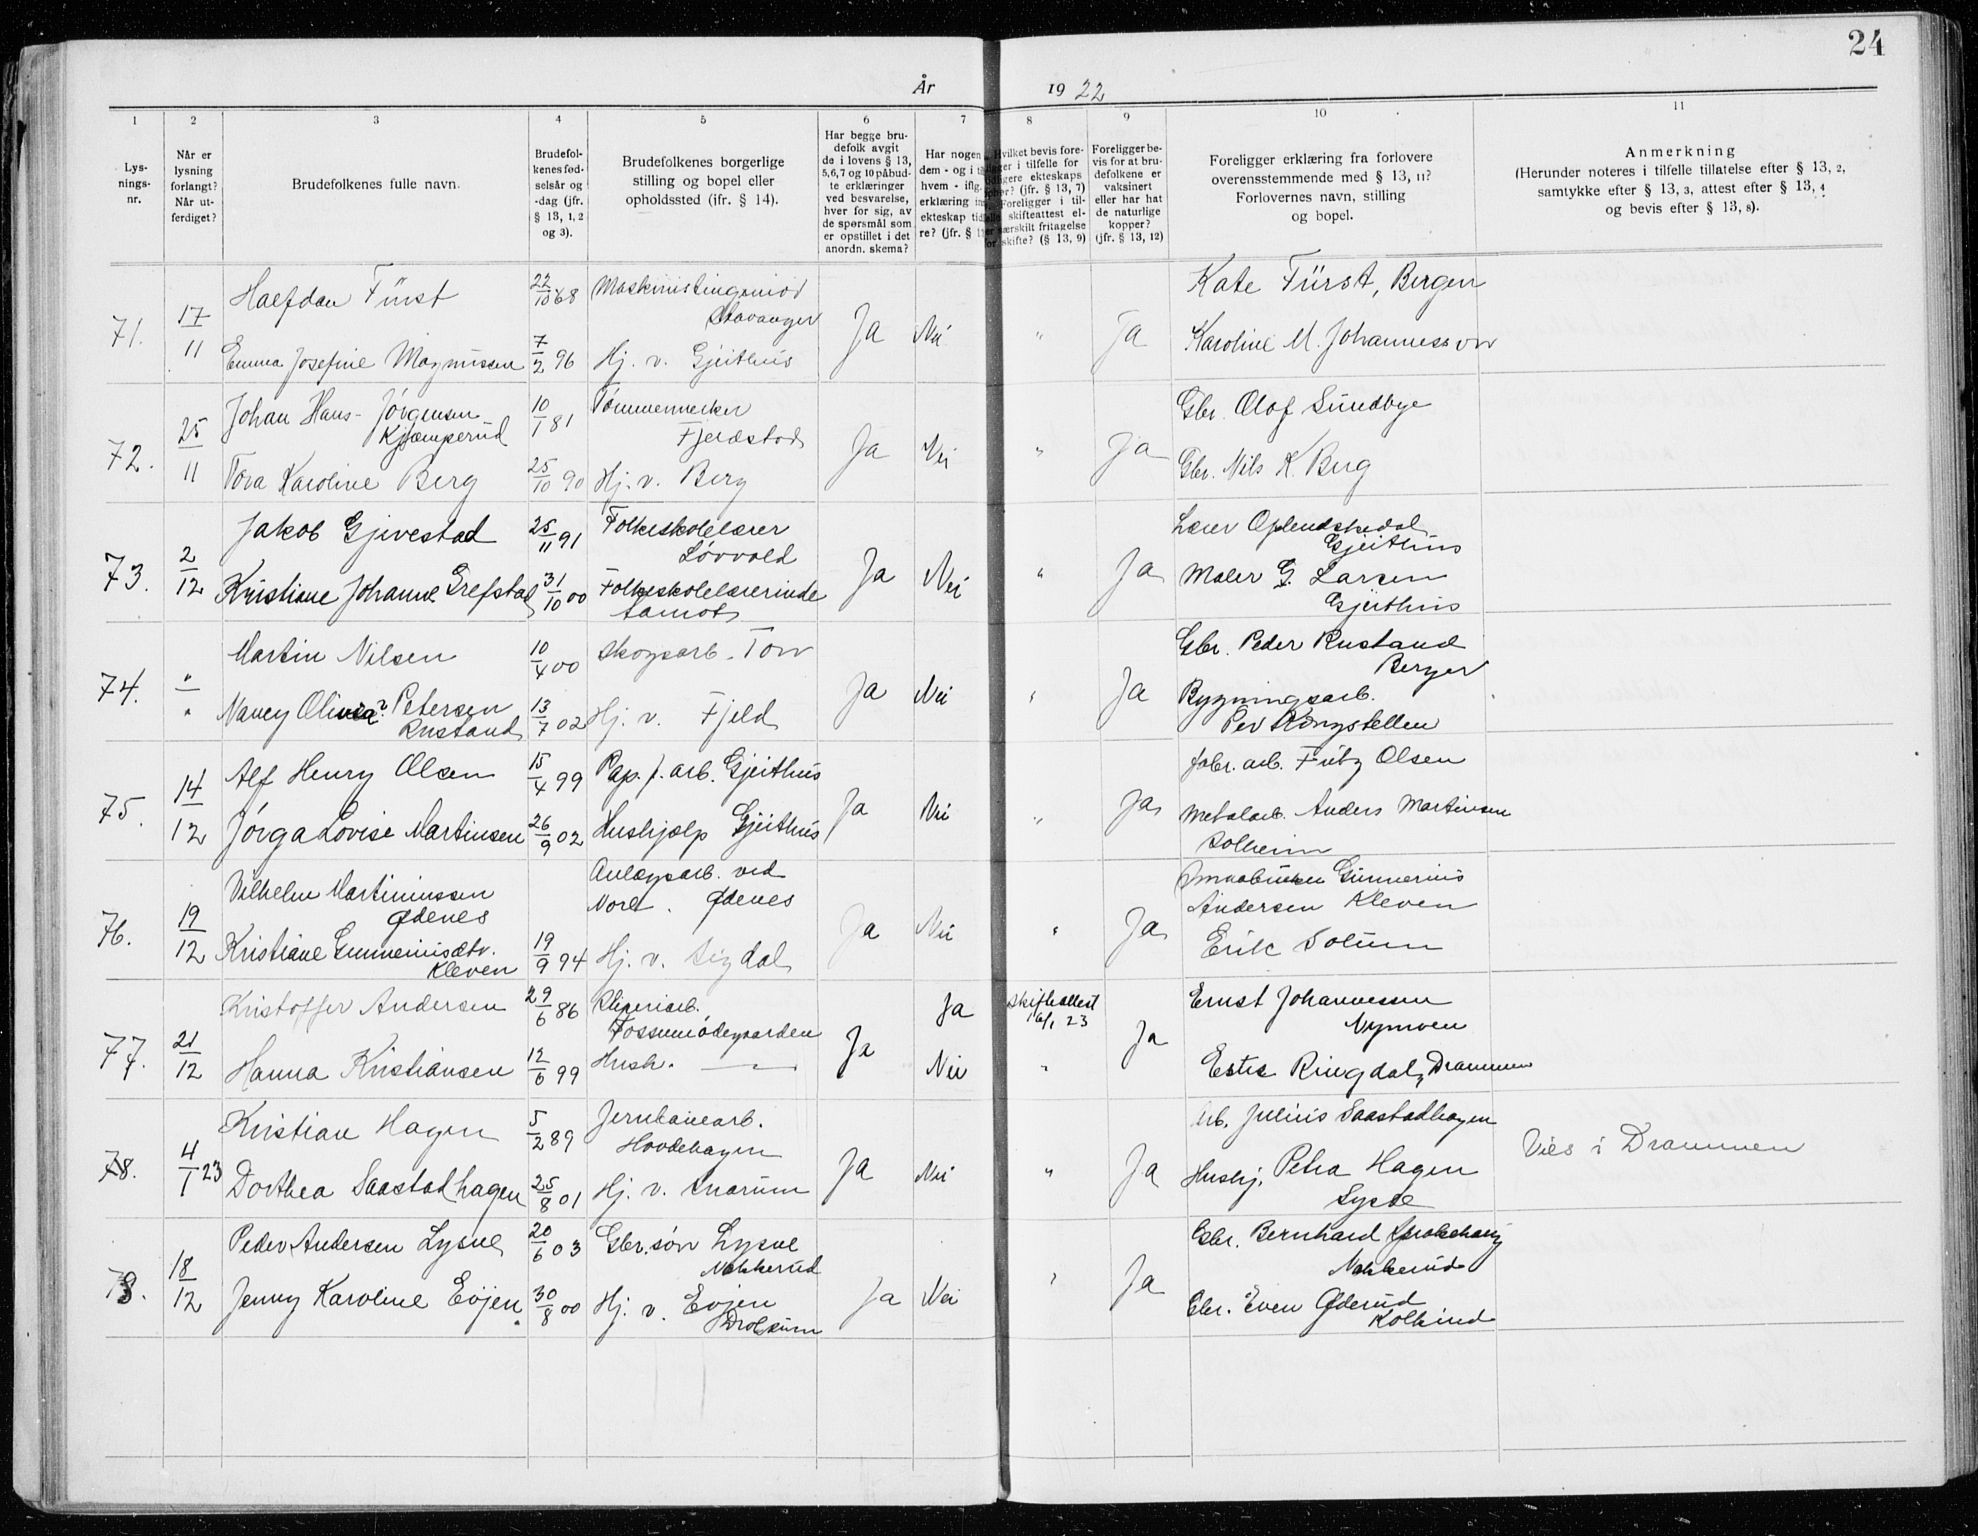 24
År 1922
1 2 3 4 5 6 7 8 9 10 11
Lys-
nings-
nr.
Når er
lysning
forlangt?
Når ut-
ferdiget?
Brudefolkenes fulle navn.
Brudefol-
kenes fød-
selsår og
-dag (jfr.
§ 13, 1, 2
og 3).
Brudefolkenes borgerlige
stilling og bopel eller
opholdssted (jfr. § 14).
Har begge bru-
defolk avgit
de i lovens § 13,
5, 6, 7 og 10 påbud-
te erklæringer
ved besvarelse,
hver for sig, av
de spørsmål som
er opstillet i det
anordn. skema?
Har nogen
dem - og i
hvem - ifig.
erklæring
ekteskap tid
re? (jfr. §
Hvilket bevis fore-
i tilfelle for
ekteskaps
(jfr. § 13, 7)
Foreligger i til-
skifteattest el-
særskilt fritagelse
skifte? (§ 13, 9)
Foreligger be-
vis for at bru-
defolkene er
vaksinert
eller har hat
de naturlige
kopper?
(jfr. § 13, 12)
Foreligger erklæring fra forlovere
overensstemmende med § 13, 11?
Forlovernes navn, stilling
og bopel.
Anmerkning
(Herunder noteres i tilfelle tillatelse efter § 13, 2,
samtykke efter § 13, 3, attest efter § 13, 4
og bevis efter § 13, 8).
71. 17/11 Halfdan Fürst 22/10 68 Maskinistingeniør
Stavanger Ja Nei " Ja Kate Fürst, Bergen
Emma Josefine Magnussen 7/2 96 Hj. v. Gjeithus Karoline M. Johannessen
72. 25/11 Johan Hans-Jørgensen
Kjæmperud 10/1 81 Tømmermerker
Fjerdestad Ja Nei " Ja Gbr. Olof Sundbye
Tora Karoline Berg 25/10 90 Hj. v. Berg Gbr. Nils K. Berg
73. 2/12 Jakob Gjevestad 25/11 91 Folkeskolelærer
Løvvold Ja Nei " Ja Lærer
Gjeithus
Kristiane Johanne Grefstad 31/10 00 Folkeskolelærerinde
Åamot Maler G. Larsen
Gjeithus
74. " Martin Nilsen 10/4 00 Skogsarb. Ja Nei " Ja Gbr. Peder Rustand
Nancy Olivia? Petersen
Rustand 13/7 02 Hj. v. Fjeld Bygningsarb.
Per
75. 14/12 Alf Henry Olsen 15/4 99 Pap. f. arb. Gjeithus Ja Nei " Ja fabr. arb. Olsen
Jørga Lovise Martinsen 26/9 02 Hushjælp Gjeithus Metalarb. Anders Martinsen
Solheim
76. 19/12 Vilhelm Martiniussen
Ødenes Anlægsarb. ved
Nore. Ødenes Ja Nei " Ja Gunnerius
Andersen Kleven
Kristiane Gunneriusdtr.
Kleven 19/9 94 Hj. v. Sigdal Erik Solum
77. 21/12 Kristoffer Andersen 29/6 86 Sliperiarb.
Fossumødegaarden Ja Ja Skifteattest
16/1 23 Ja Ernst Johannessen
Nymoen
Hanna Kristiansen 12/6 99 Hush. — " — Nei " Ringdal, Drammen
78. 4/1 23 Kristian Hagen 5/2 89 Jernbanearb.
Hovdehagen Ja Nei " Ja Arb. Julius Saastadhagen Vies i Drammen
Dorthea Saastadhagen 25/8 01 Hj. v. Snarum Hushj. Petra Hagen
78. 18/12 Peder Andersen Lysne 20/6 03 Gbr. søn Lysne
Nakkerud Ja Nei " Ja Gbr. Bernhard
Nakkerud
Jenny Karoline Evjen 30/8 00 Hj. v. Evjen
Drolsum Gbr. Even Øderud